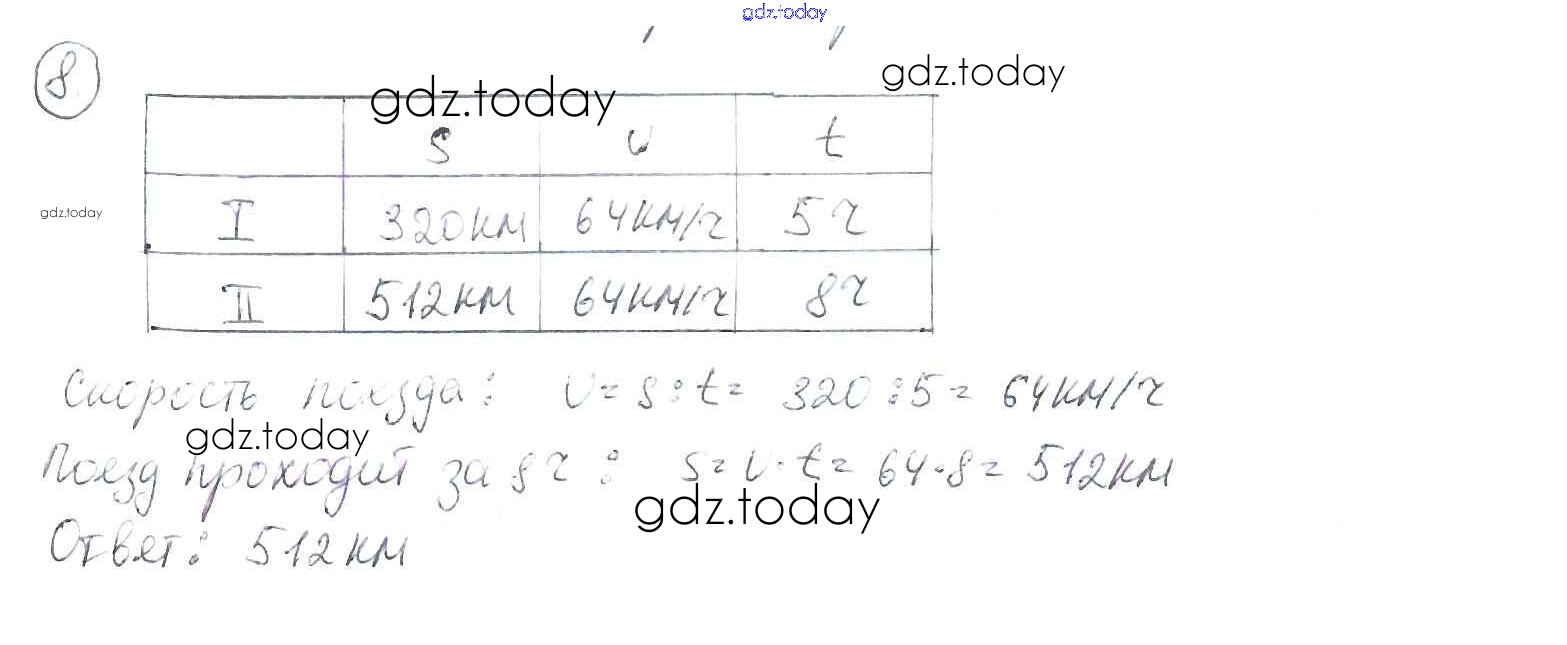 gdz.today
8
gdz.today
gdz.today
S v t
gdz.today
I 320км 64км/ч 5ч
II 512км 64км/ч 8ч
Скорость поезда: v = s : t = 320 : 5 = 64км/ч
gdz.today
Поезд проходит за 8ч : s = v · t = 64 · 8 = 512км
gdz.today
Ответ: 512км